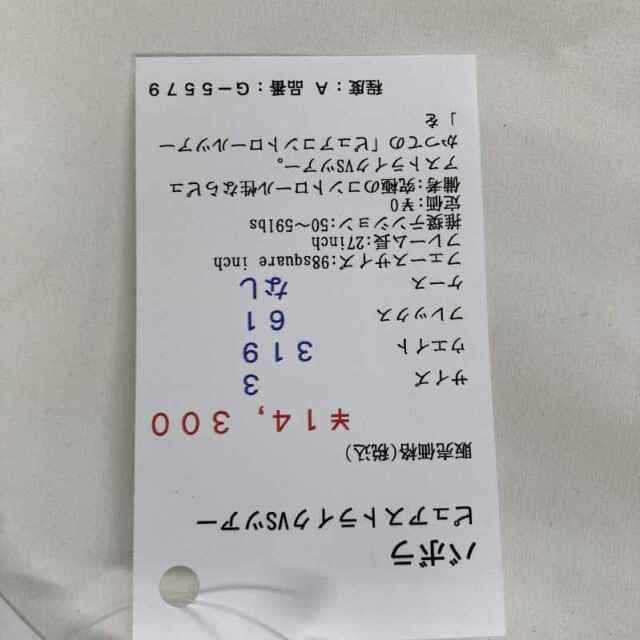 バボラ
ピュアストライクVSツアー
販売価格(税込)
￥14,300
サイズ 3
ウエイト 319
フレックス 61
ケース なし
フェースサイズ:98square inch
フレーム長:27inch
推奨テンション:50～59lbs
定価:¥0
備考:究極のコントロール性ならピュ
アストライクVSツアー。
かつての「ピュアコントロールツアー
」を
程度：A 品番：G－5579